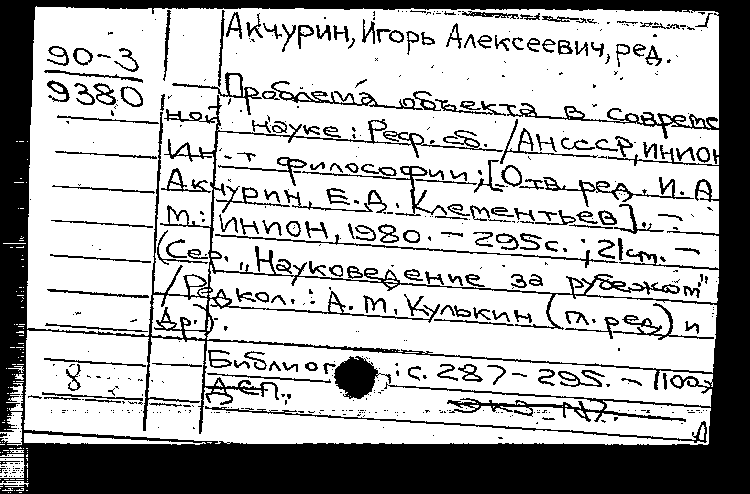 Акчурин, Игорь Алексеевич, ред.
90-3
9380
Проблема объекта в совреме
ной науке: Реф. сб. /АНСССР, ИНИОН
Ин-т философии; [Отв. ред. И. А
Акчурин, Е. Д. Клементьев]. –
М.: ИНИОН, 1980. – 295с.; 21см. –
(Сер. „Науковедение за рубежом"
/Редкол.: А. М. Кулькин (гл. ред) и
др.).
Библиог : с. 287-295. –
8